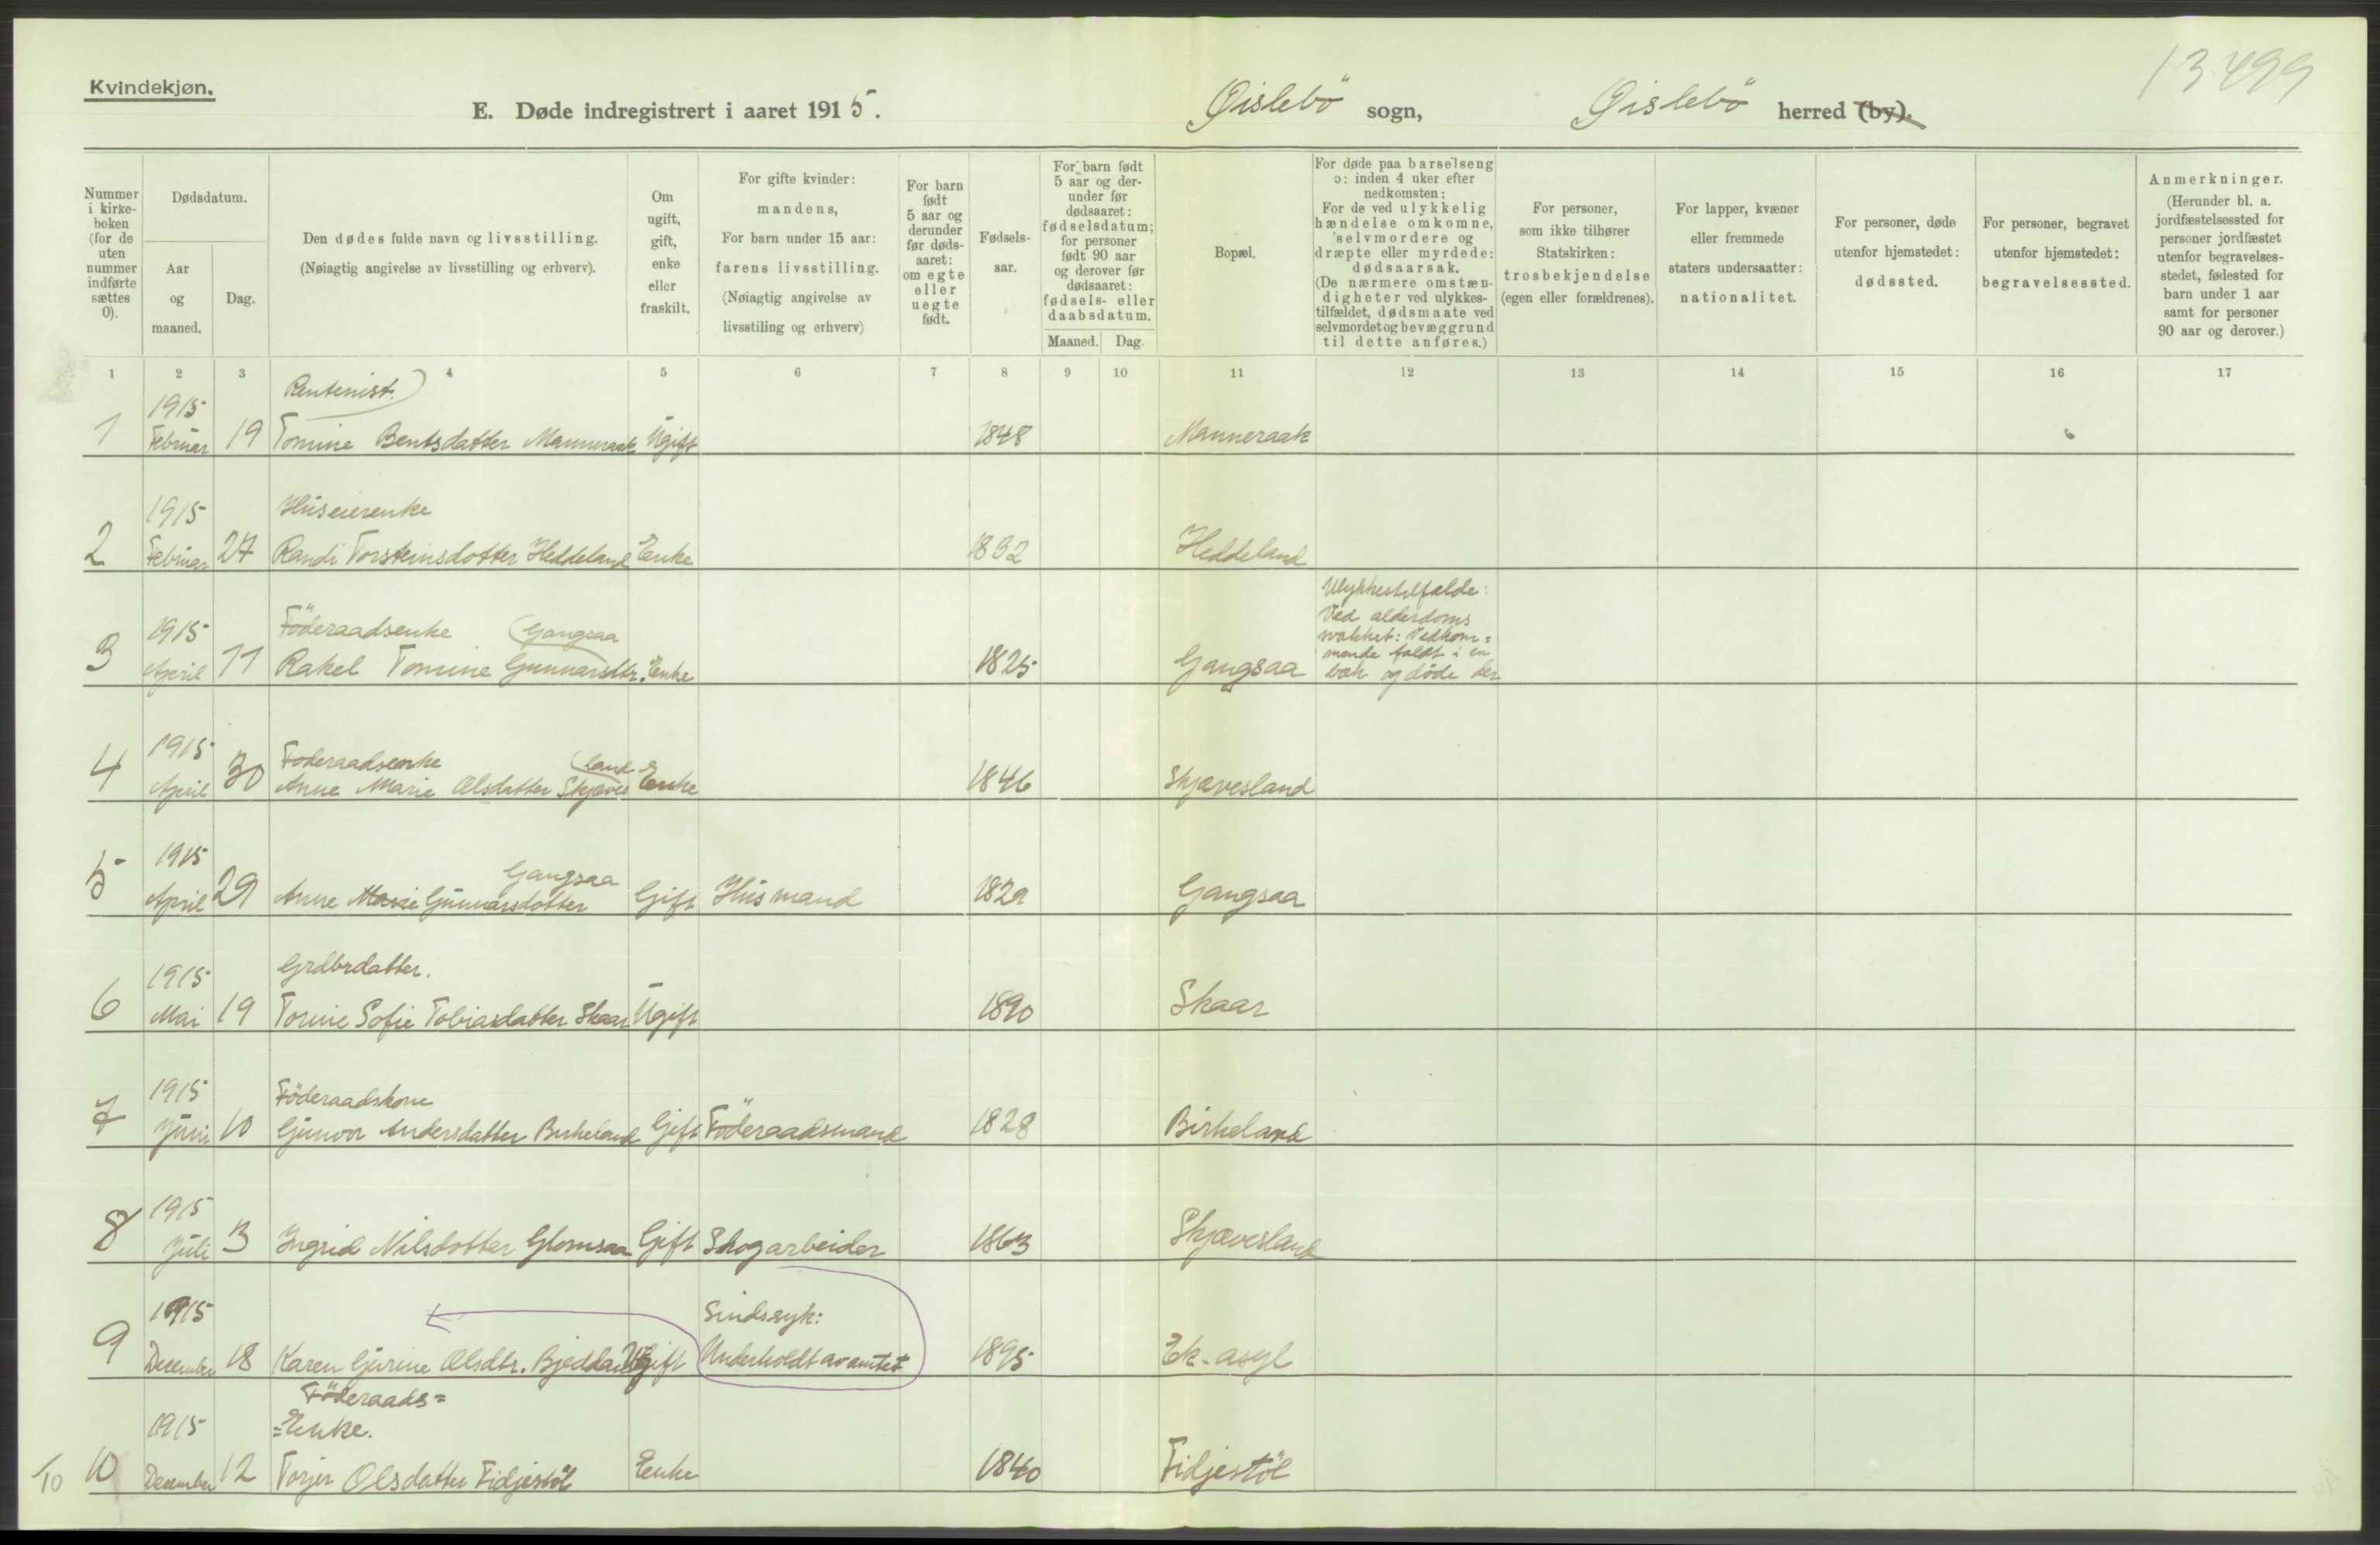 13499
Kvindekjøn.
E. Døde indregistrert i aaret 1915. Øislebö sogn, Øislebö herred (by).
Nummer i kirkeboken (for de uten nummer indførte sættes 0).
Dødsdatum.
Aar og maaned.
Dag.
Den dødes fulde navn og livsstilling.
(Nøiagtig angivelse av livsstilling og erhverv).
Om ugift, gift, enke eller fraskilt.
For gifte kvinder: mandens,
For barn under 15 aar: farens livsstilling.
(Nøiagtig angivelse av livsstiling og erhverv)
For barn født 5 aar og derunder før dødsaaret: om egte eller uegte født.
Fødselsaar.
For barn født 5 aar og derunder før dødsaaret: fødselsdatum; for personer født 90 aar og derover før dødsaaret: fødsels- eller daabsdatum.
Maaned. Dag.
Bopæl.
For døde paa barselseng ɔ: inden 4 uker efter nedkomsten:
For de ved ulykkelig hændelse omkomne, selvmordere og dræpte eller myrdede: dødsaarsak.
(De nærmere omstændigheter ved ulykkestilfældet, dødsmaate ved selvmordet og bevæggrund til dette anføres.)
For personer, som ikke tilhører Statskirken: trosbekjendelse (egen eller forældrenes).
For lapper, kvæner eller fremmede staters undersaatter: nationalitet.
For personer, døde utenfor hjemstedet: dødssted.
For personer, begravet utenfor hjemstedet: begravelsessted.
Anmerkninger.
(Herunder bl. a. jordfæstelsessted for personer jordfæstet utenfor begravelsesstedet, fødested for barn under 1 aar samt for personer 90 aar og derover.)
1 2 3 4 5 6 7 8 9 10 11 12 13 14 15 16 17
1915 Rentenist.
1 Februar 19 Tomine Bentsdatter Manneraak Ugift 1848 Manneraak
1915 Huseierenke
2 Februar 27 Randi Torsteinsdotter Heddeland Enke 1832 Heddeland
Ulykkestilfælde:
Ved alderdoms
svakhet: Vedkom=
mende faldt i en
bæk og døde der
1915 Föderaadsenke Gangsaa
3 April 11 Rakel Tomine Gunnarsdtr. Enke 1825 Gangsaa
1915 Foderaadsenke land
4 April 30 Anne Marie Olsdatter Skjæves Enke 1846 Skjævesland
1915 Gangsaa
5 April 29 Anne Marie Gunnarsdotter Gift Husmand 1829 Gangsaa
1915 Grdbrdatter.
6 Mai 19 Torine Sofie Tobiasdatter Skaar Ugift 1890 Skaar
1915 Föderaadskone
7 Juni 10 Gunvor Andersdatter Birkeland Gift Föderaadsmand 1828 Birkeland
1915
8 Juli 3 Ingrid Nilsdotter Glomsaa Gift Skogarbeider 1863 Skjævesland
1915 Sindssyk:
9 December 18 Karen Gurine Olsdtr. Ugift Underholdt av amtet 1895 Ek. asyl
Föderaads=
1915 =Enke.
10 10 December 12 Torjer Olsdatter Fidjestöl Enke 1840 Fidjestöl